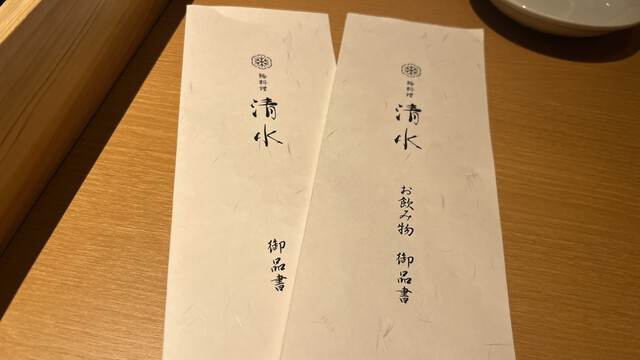 料理
清水
御品書
料理
清水
お飲み物 御品書